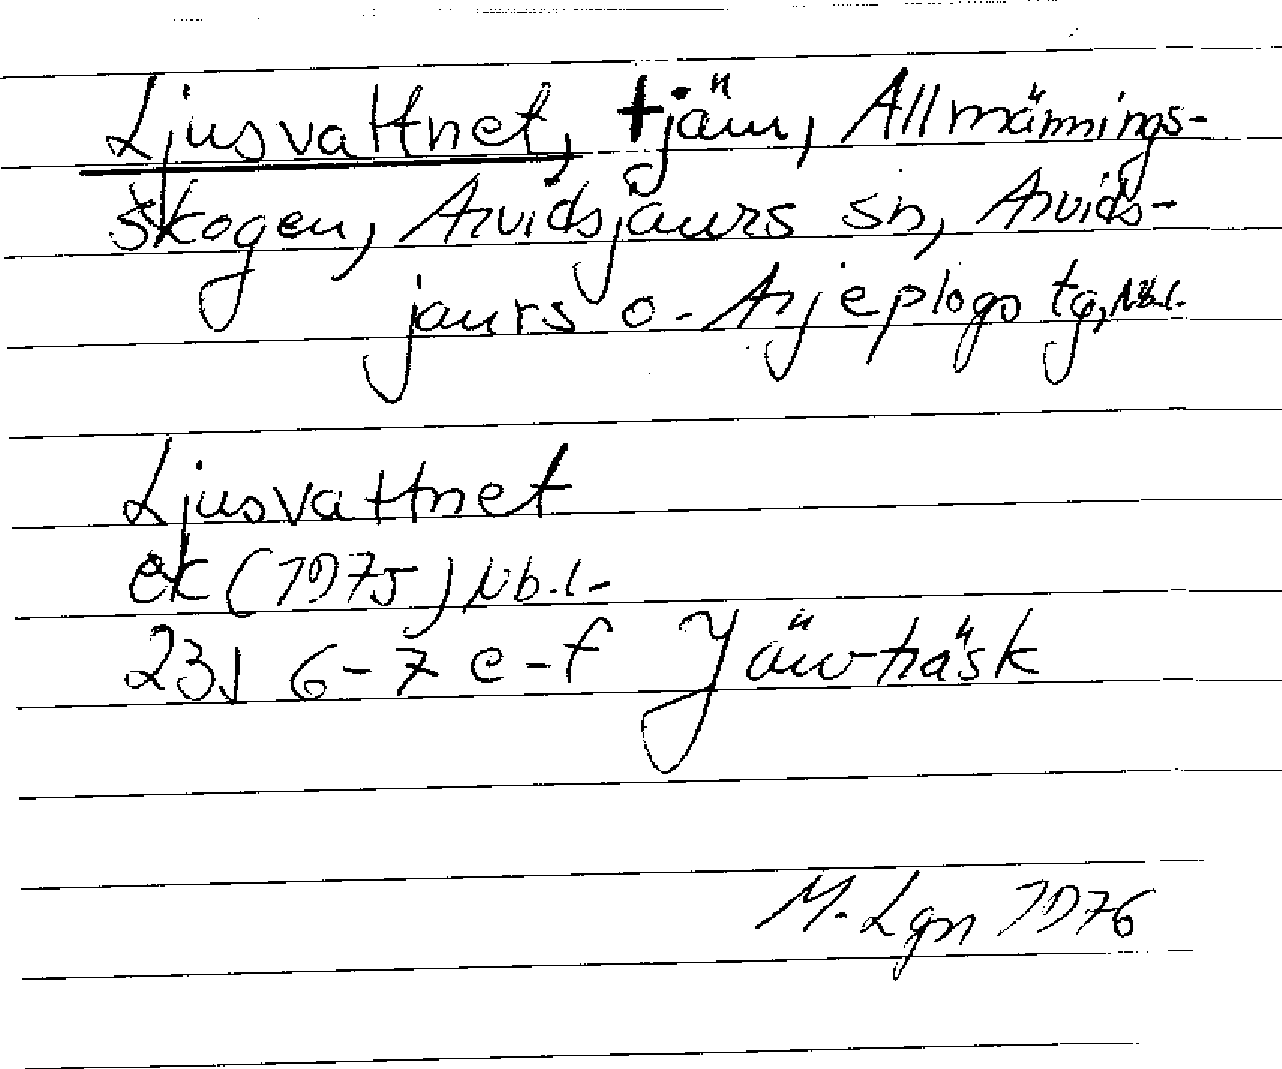 Ljusvattnet, tjärn, Allmännings-
skogen, Arvidsjaurs sn, Arvids-
jaurs o. Arjeplogs tg, Nb.l.
Ljusvattnet
ek (1975) Nb.l.
23J 6-7 e-f Järvträsk
M. Lgn 1976